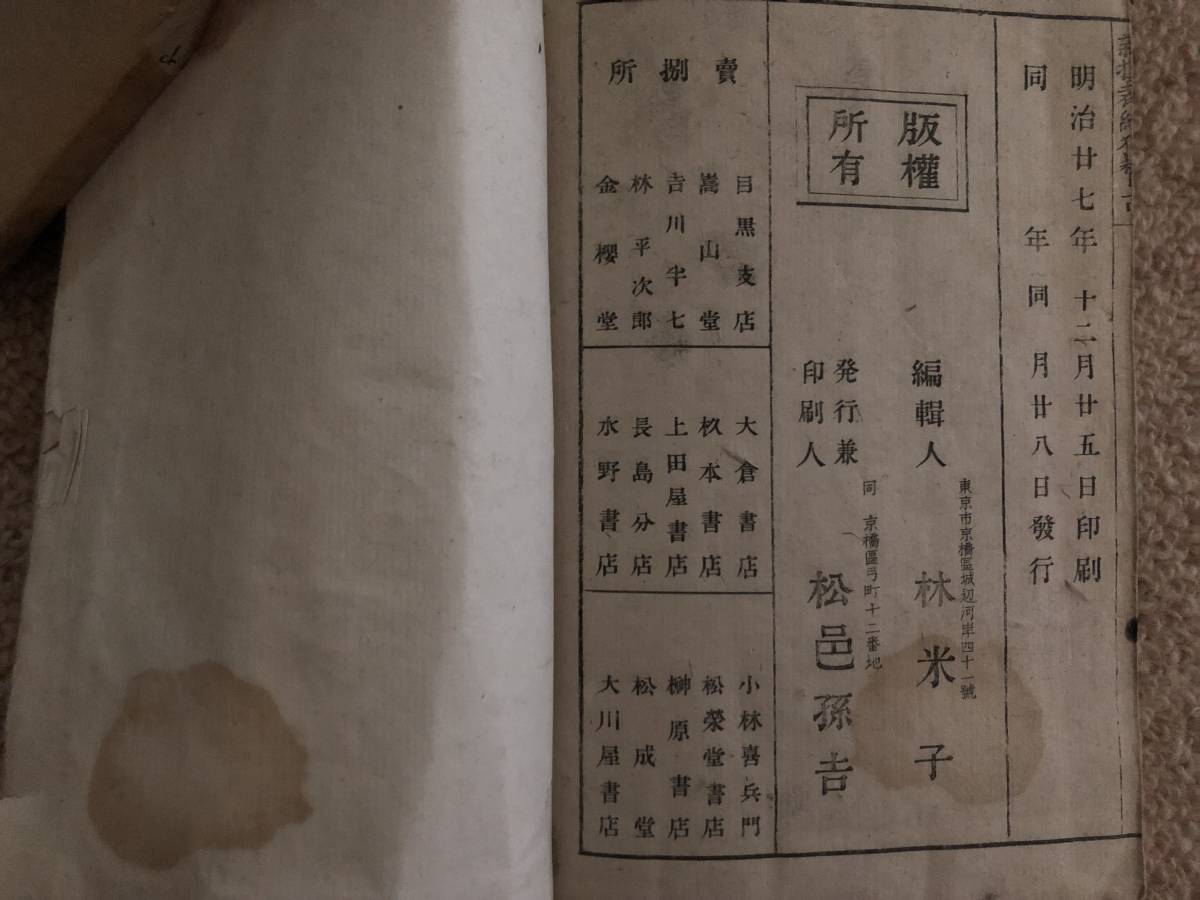 明治廿七年十二月廿五日印刷
同年同月廿八日發行
版權所有
東京市京橋區城辺河岸四十一號
編輯人 林米子
同京橋區弓町十二番地
発行兼印刷人 松邑孫吉
賣捌所
目黒支店
嵩山堂
吉川半七
林平次郎
金櫻堂
大倉書店
杦本書店
上田屋書店
長島分店
水野書店
小林喜兵門
松榮堂書店
榊原書店
松成堂
大川屋書店